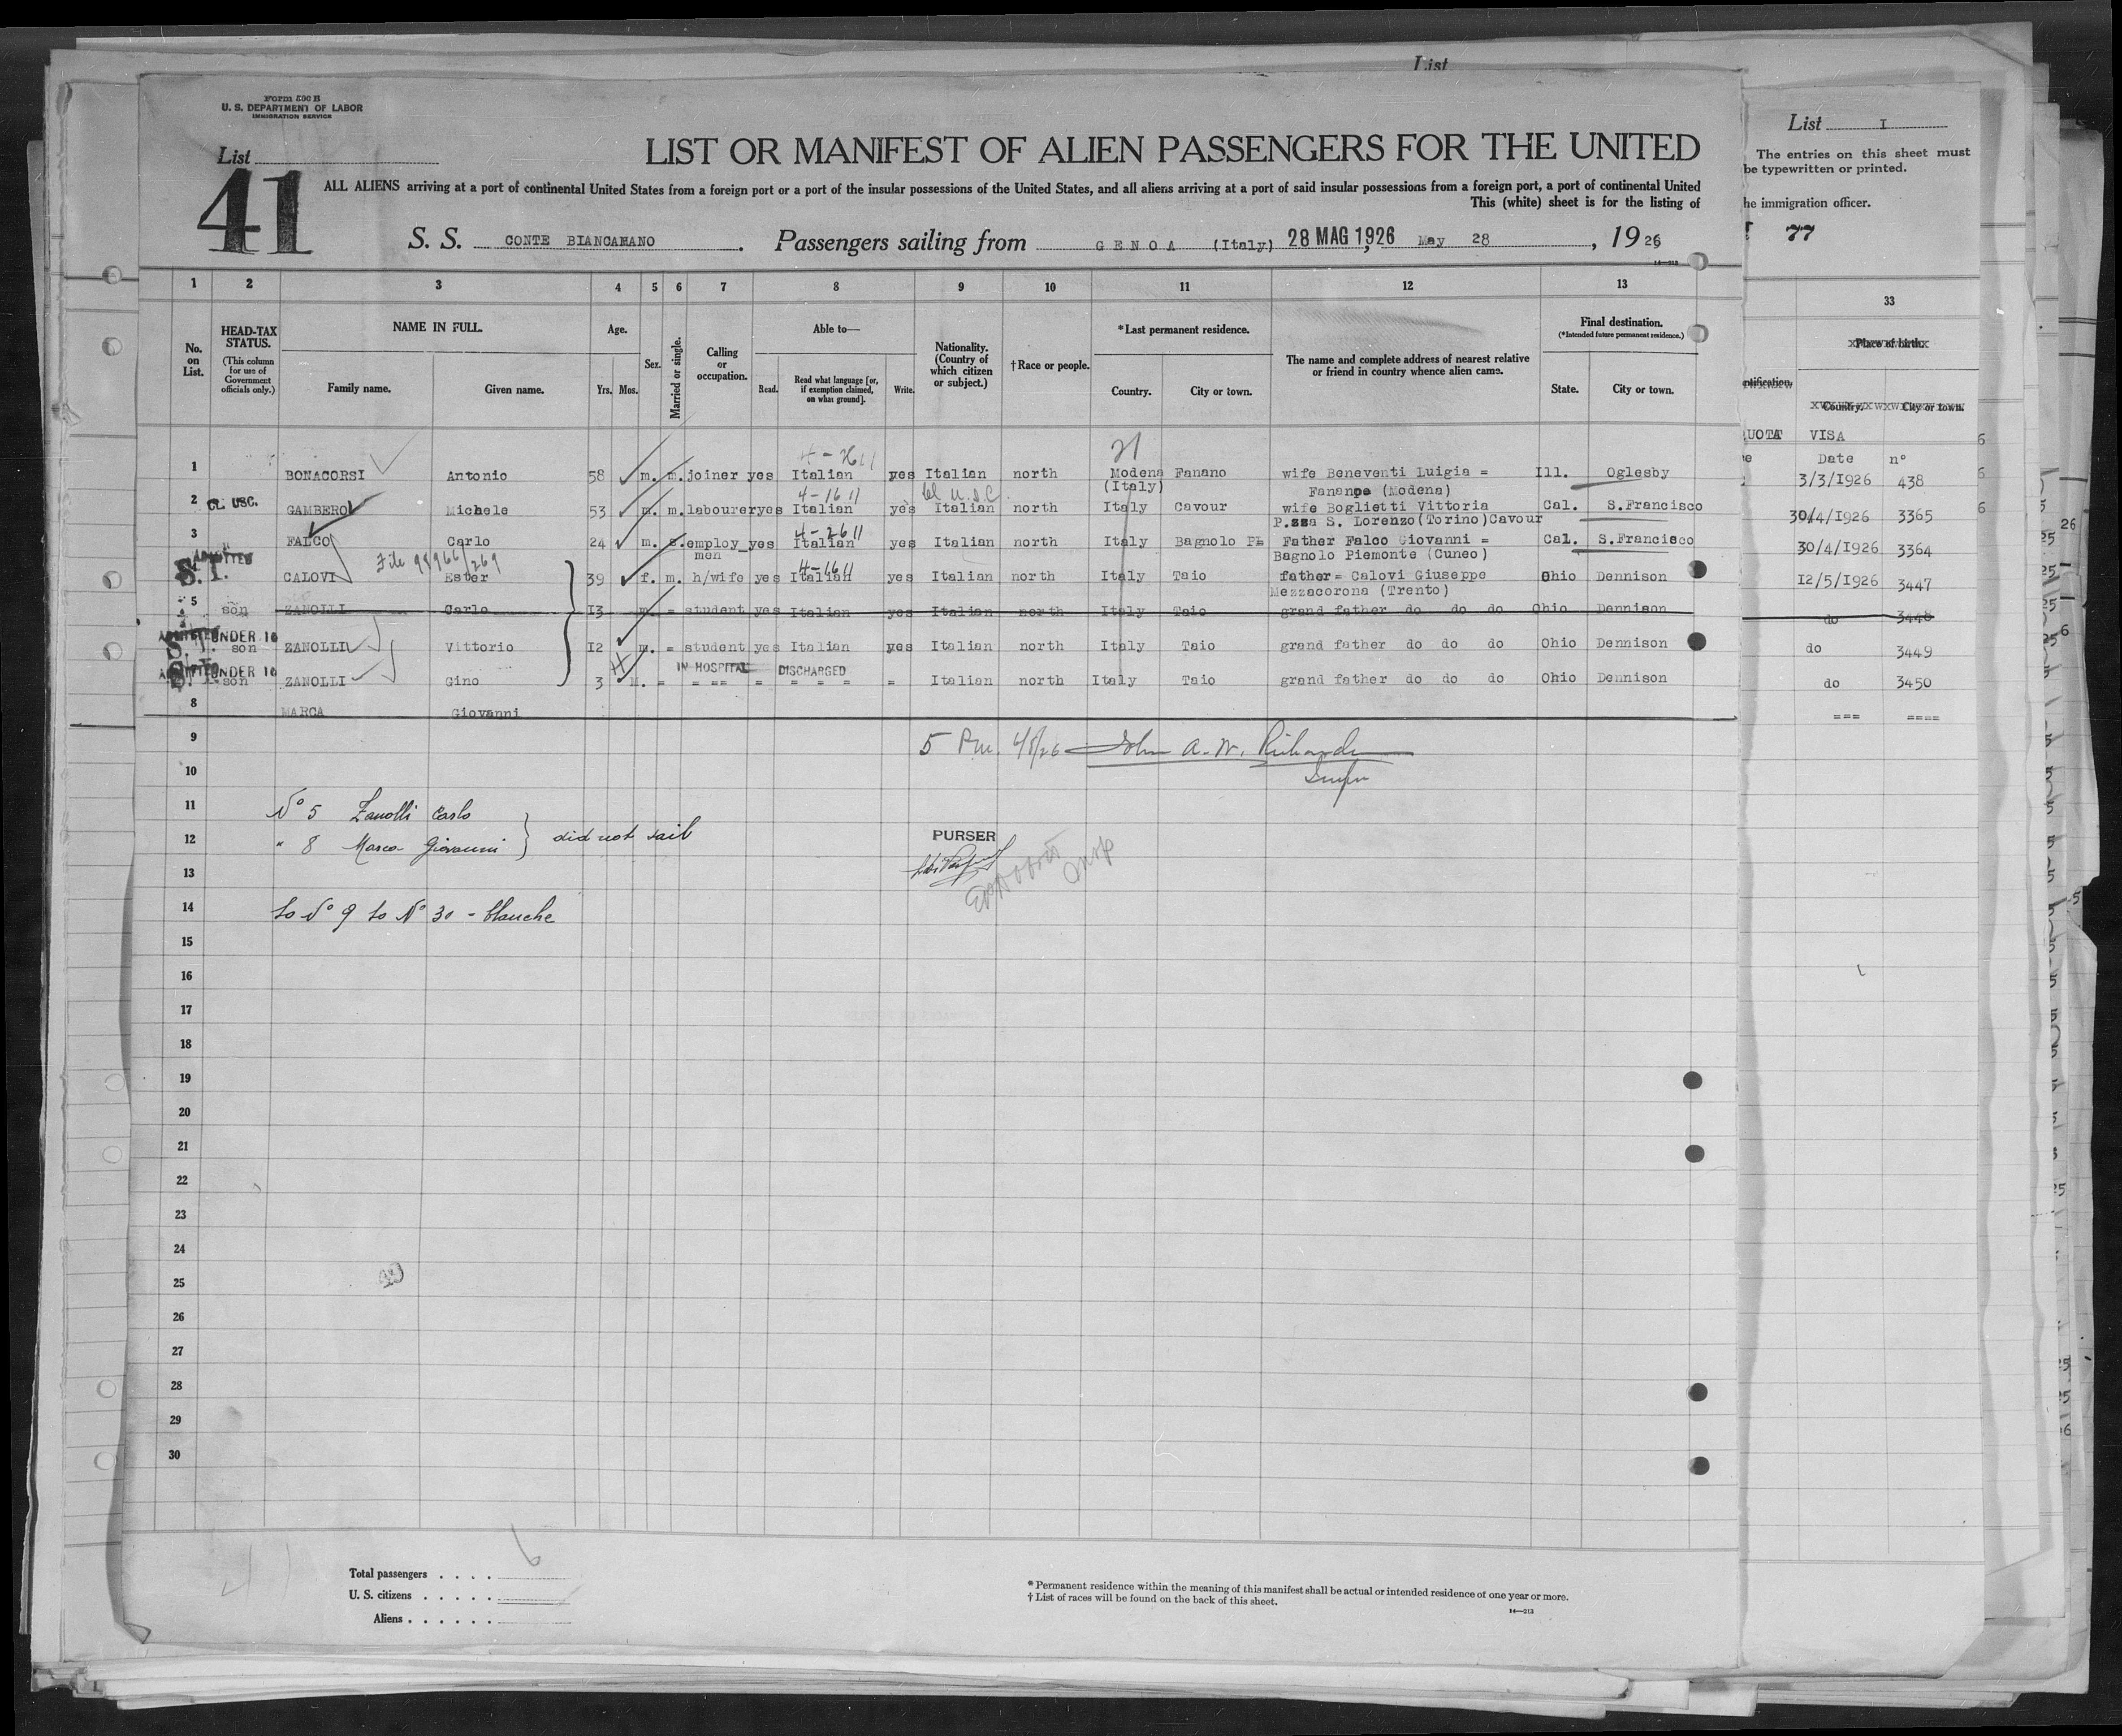 List
Form 500 B
U. S. DEPARTMENT OF LABOR
IMMIGRATION SERVICE
List
41
LIST OR MANIFEST OF ALIEN PASSENGERS FOR THE UNITED
ALL ALIENS arriving at a port of continental United States from a foreign port or a port of the insular possessions of the United States, and all aliens arriving at a port of said insular possessions from a foreign port, a port of continental United
This (white) sheet is for the listing of
S. S. CONTE BIANCAMANO. Passengers sailing from GENOA (Italy) 28 MAG 1926 May 28, 1926
14—213
List I
The entries on this sheet must
be typewritten or printed.
he immigration officer.
77
1 2 3 4 5 6 7 8 9 10 11 12 13
33
No. on List.
HEAD-TAX STATUS.
(This column for use of Government officials only.)
NAME IN FULL.
Family name. Given name.
Age.
Yrs. Mos.
Sex.
Married or single.
Calling or occupation.
Able to—
Read. Read what language [or, if exemption claimed, on what ground]. Write.
Nationality. (Country of which citizen or subject.)
†Race or people.
*Last permanent residence.
Country. City or town.
The name and complete address of nearest relative or friend in country whence alien came.
Final destination.
(*Intended future permanent residence.)
State. City or town.
Place of birth.
Country. City or town.
VISA
Date n°
21
1 BONACORSI Antonio 58 m. m. joiner yes Italian yes Italian north Modena Fanano wife Beneventi Luigia = Ill. Oglesby 3/3/1926 438
(Italy) Fananoe (Modena)
4-1611
2 CL. USC. GAMBERO Michele 53 m. m. labourer yes Italian yes Italian north Italy Cavour wife Boglietti Vittoria Cal. S.Francisco 30/4/1926 3365
P.zza S. Lorenzo(Torino)Cavour
4-2611
3 FALCO Carlo 24 m. s. employ_ yes Italian yes Italian north Italy Bagnolo PL Father Falco Giovanni = Cal. S.Francisco 30/4/1926 3364
men Bagnolo Piemonte (Cuneo)
ADMITTED File 98966/269
S.I. CALOVI Ester 39 f. m. h/wife yes Italian yes Italian north Italy Taio father= Calovi Giuseppe Ohio Dennison 12/5/1926 3447
Mezzacorona (Trento)
5 son ZANOLLI Carlo 13 m. = student yes Italian yes Italian north Italy Taio grand father do do do Ohio Dennison do 3448
ADMITTED UNDER 16
S.I. son ZANOLLI Vittorio 12 m. = student yes Italian yes Italian north Italy Taio grand father do do do Ohio Dennison do 3449
ADMITTED UNDER 16 IN HOSPITAL DISCHARGED
S.I. son ZANOLLI Gino 3 M. = = == = = = = = = Italian north Italy Taio grand father do do do Ohio Dennison do 3450
8 MARCA Giovanni === ====
9 5 Pm. 6/8/26 John A. W. Richards
10
11 N° 5 Zanolli Carlo
12 " 8 Marca Giovanni } did not sail
PURSER
13
14 to N° 9 to N° 30 - blanche
15
16
17
18
19
20
21
22
23
24
25
26
27
28
29
30
6
Total passengers . . . .
U. S. citizens . . . . .
Aliens . . . . . .
* Permanent residence within the meaning of this manifest shall be actual or intended residence of one year or more.
† List of races will be found on the back of this sheet.
14—213